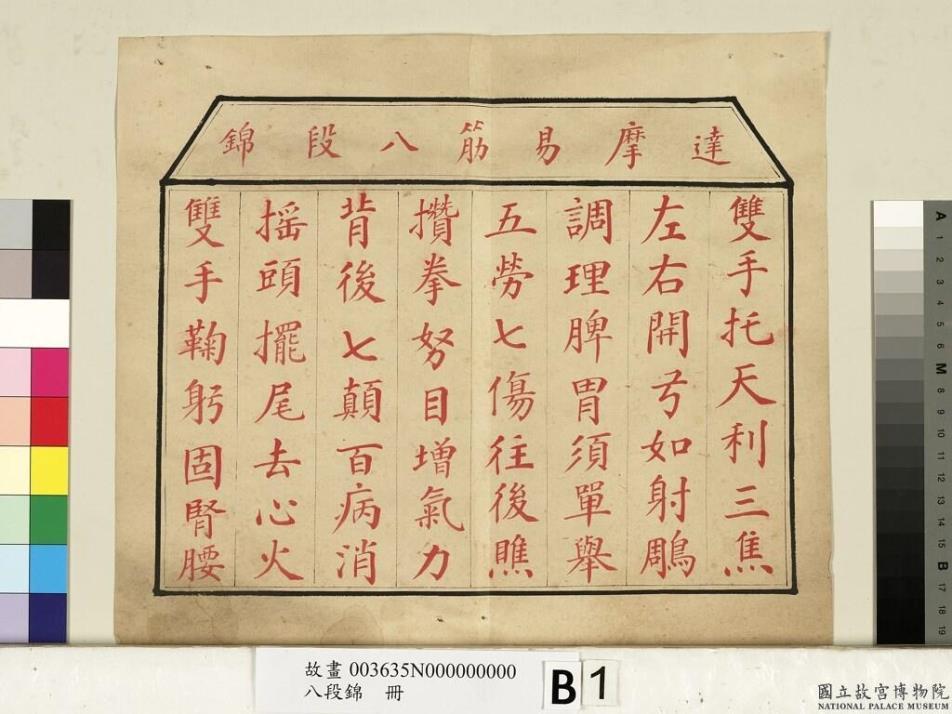 達摩易筋八段錦
雙手托天利三焦
左右開弓如射鵰
調理脾胃須單舉
五勞七傷往後瞧
攢拳努目增氣力
背後七顛百病消
搖頭擺尾去心火
雙手鞠躬固腎腰
故畫 003635N000000000
八段錦 冊
B 1
A
1
2
3
4
5
6
M
8
9
10
11
12
13
14
15
B
17
18
19
國立故宮博物院
NATIONAL PALACE MUSEUM